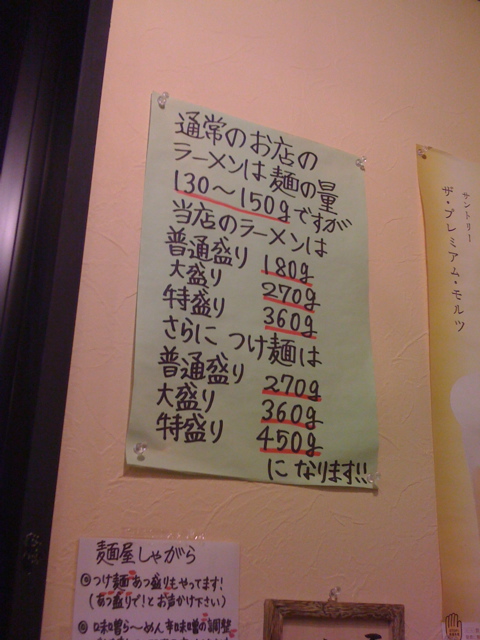 通常のお店の
ラーメンは麺の量
130〜150gですが
当店のラーメンは
普通盛り 180g
大盛り 270g
特盛り 360g
さらに つけ麺は
普通盛り 270g
大盛り 360g
特盛り 450g
に なります!!
サントリー
ザ・プレミアム・モルツ
麺屋しゃがら
◎つけ麺あつ盛りもやってます!
(あつ盛りで!とお声かけ下さい)
◎味噌らーめん辛味噌の調整